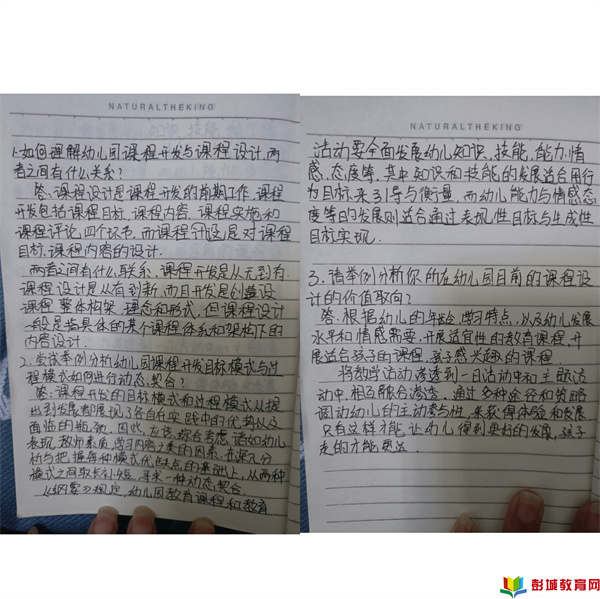 NATURALTHEKING
1.如何理解幼儿园课程开发与课程设计,两
者之间有什么关系?
答:课程设计是课程开发的前期工作,课程
开发包括课程目标、课程内容、课程实施和
课程评论,四个环节.而课程设计是对课程
目标、课程内容的设计.
两者之间有什么联系.课程开发是从无到有.
课程设计是从有到新,而且开发是创造设
课程整体构架、理念和形式,但课程设计
一般是指具体的某个课程体系和架构下的
内容设计.
2.尝试举例分析幼儿园课程开发目标模式与过
程模式如何进行动态契合?
答:课程开发的目标模式和过程模式从提
出到发展都展现了各自在实践中的优势以及
面临的瓶颈.因此,应该综合考虑诸如幼儿
表现、教师素质、学习内容之类的因素,在深入分
析与把握每种模式优缺点的基础上,从两种
模式之间取长补短,寻求一种动态契合.
《纲要》规定,幼儿园教育课程和教育
NATURALTHEKING
活动要全面发展幼儿知识、技能、能力、情
感、态度等,其中知识和技能的发展适合用行
为目标来引导与衡量,而幼儿能力与情感态
度等的发展则适合通过表现性目标与生成性
目标实现.
3.请举例分析你所在幼儿园目前的课程设
计的价值取向?
答:根据幼儿的年龄,学习特点,以及幼儿发展
水平和情感需要,开展适宜性的教育课程,开
展适合孩子的课程,孩子感兴趣的课程
将教学活动渗透到一日活动中和主题活
动中,相互融合渗透.通过多种途径和策略
调动幼儿的主动参与性,来获得体验和发展
只有这样才能让幼儿得到更好的发展,孩子
走的才能更远.
彭城教育网